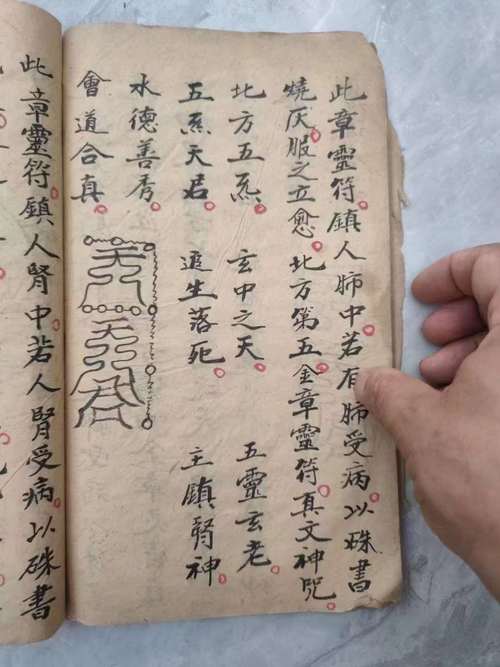 此章靈符鎮人肺中若有肺受病以硃書
燒灰服之立愈北方第五金章靈符真文神咒
北方五炁 玄中之天 五靈玄老
五炁天君 追生落死 主鎮腎神
水德善秀
會道合真
此章靈符鎮人腎中若人腎受病以硃書